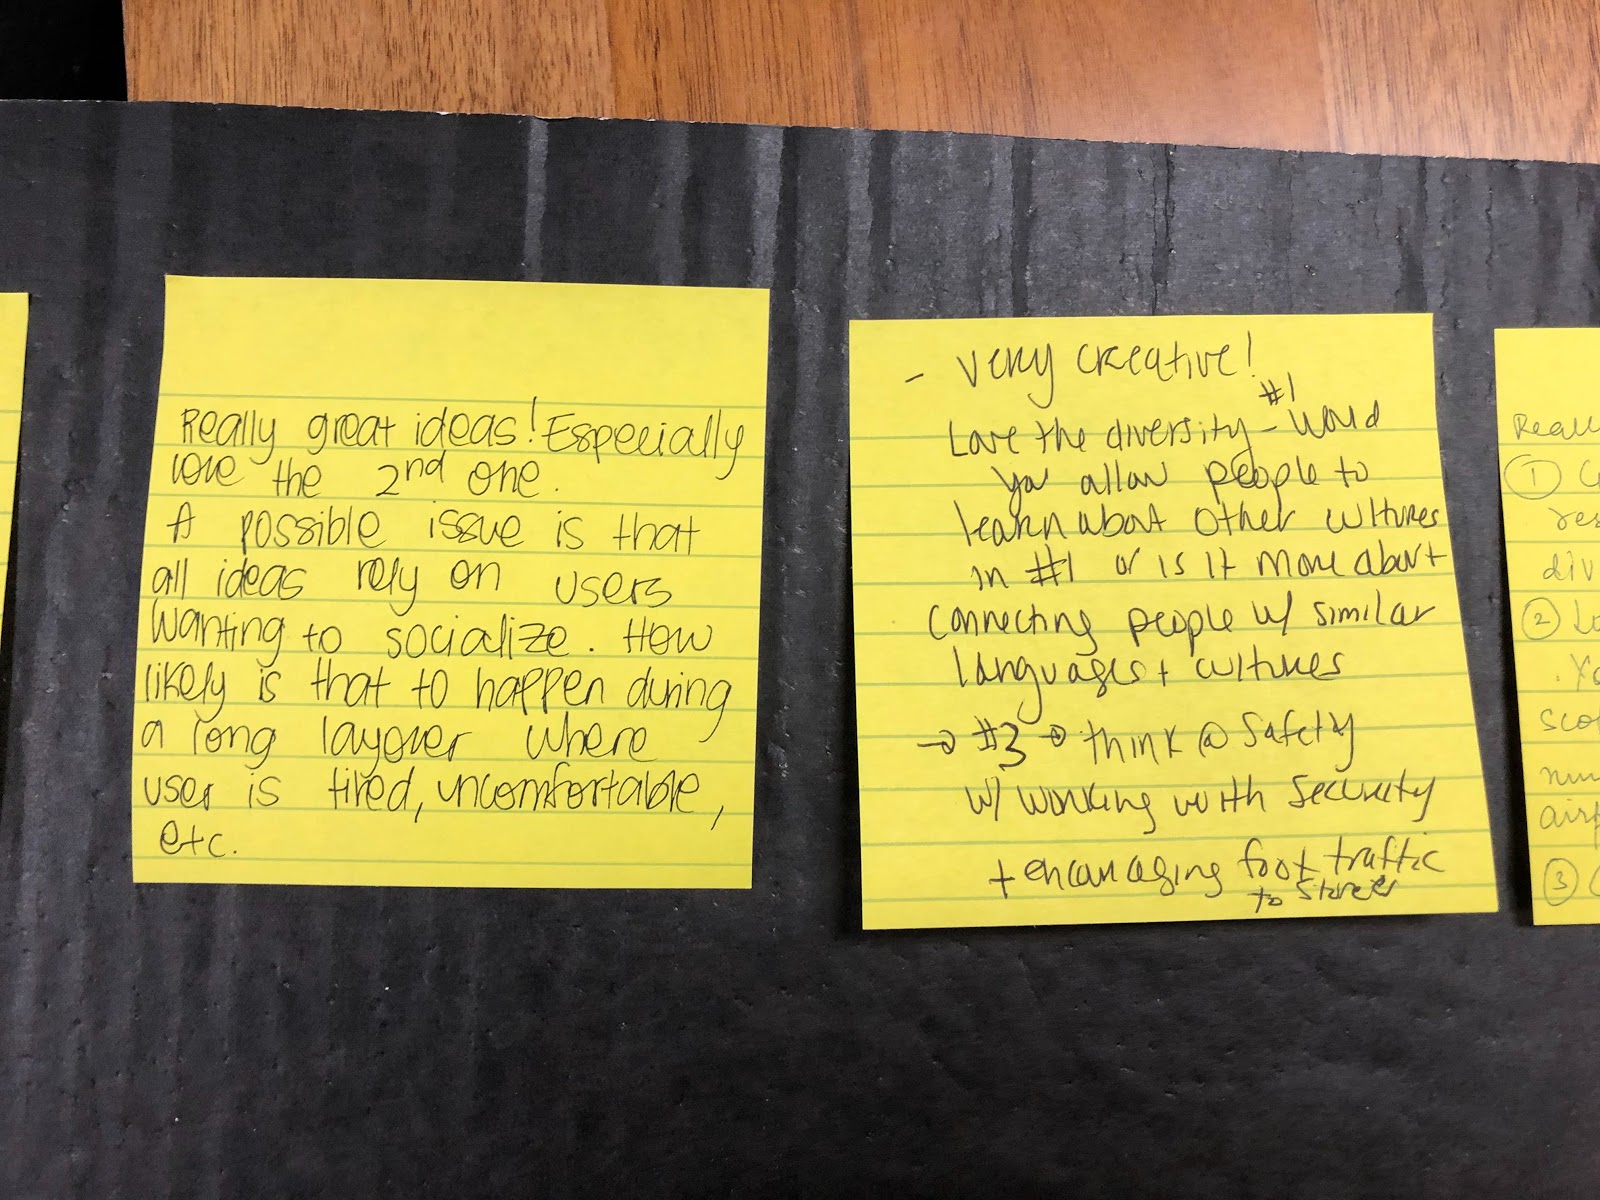 Really great ideas! Especially
love the 2nd one.
A possible issue is that
all ideas rely on users
wanting to socialize. How
likely is that to happen during
a long layover where
user is tired, uncomfortable,
etc.
- Very creative!
#1
Love the diversity - Would
you allow people to
learn about other cultures
in #1 or is it more about
connecting people w/ similar
languages + cultures
→ #3 → think @ safety
w/ working with security
+ encouraging foot traffic
to stores
①
res
div
②
Yo
sco
num
airp
③